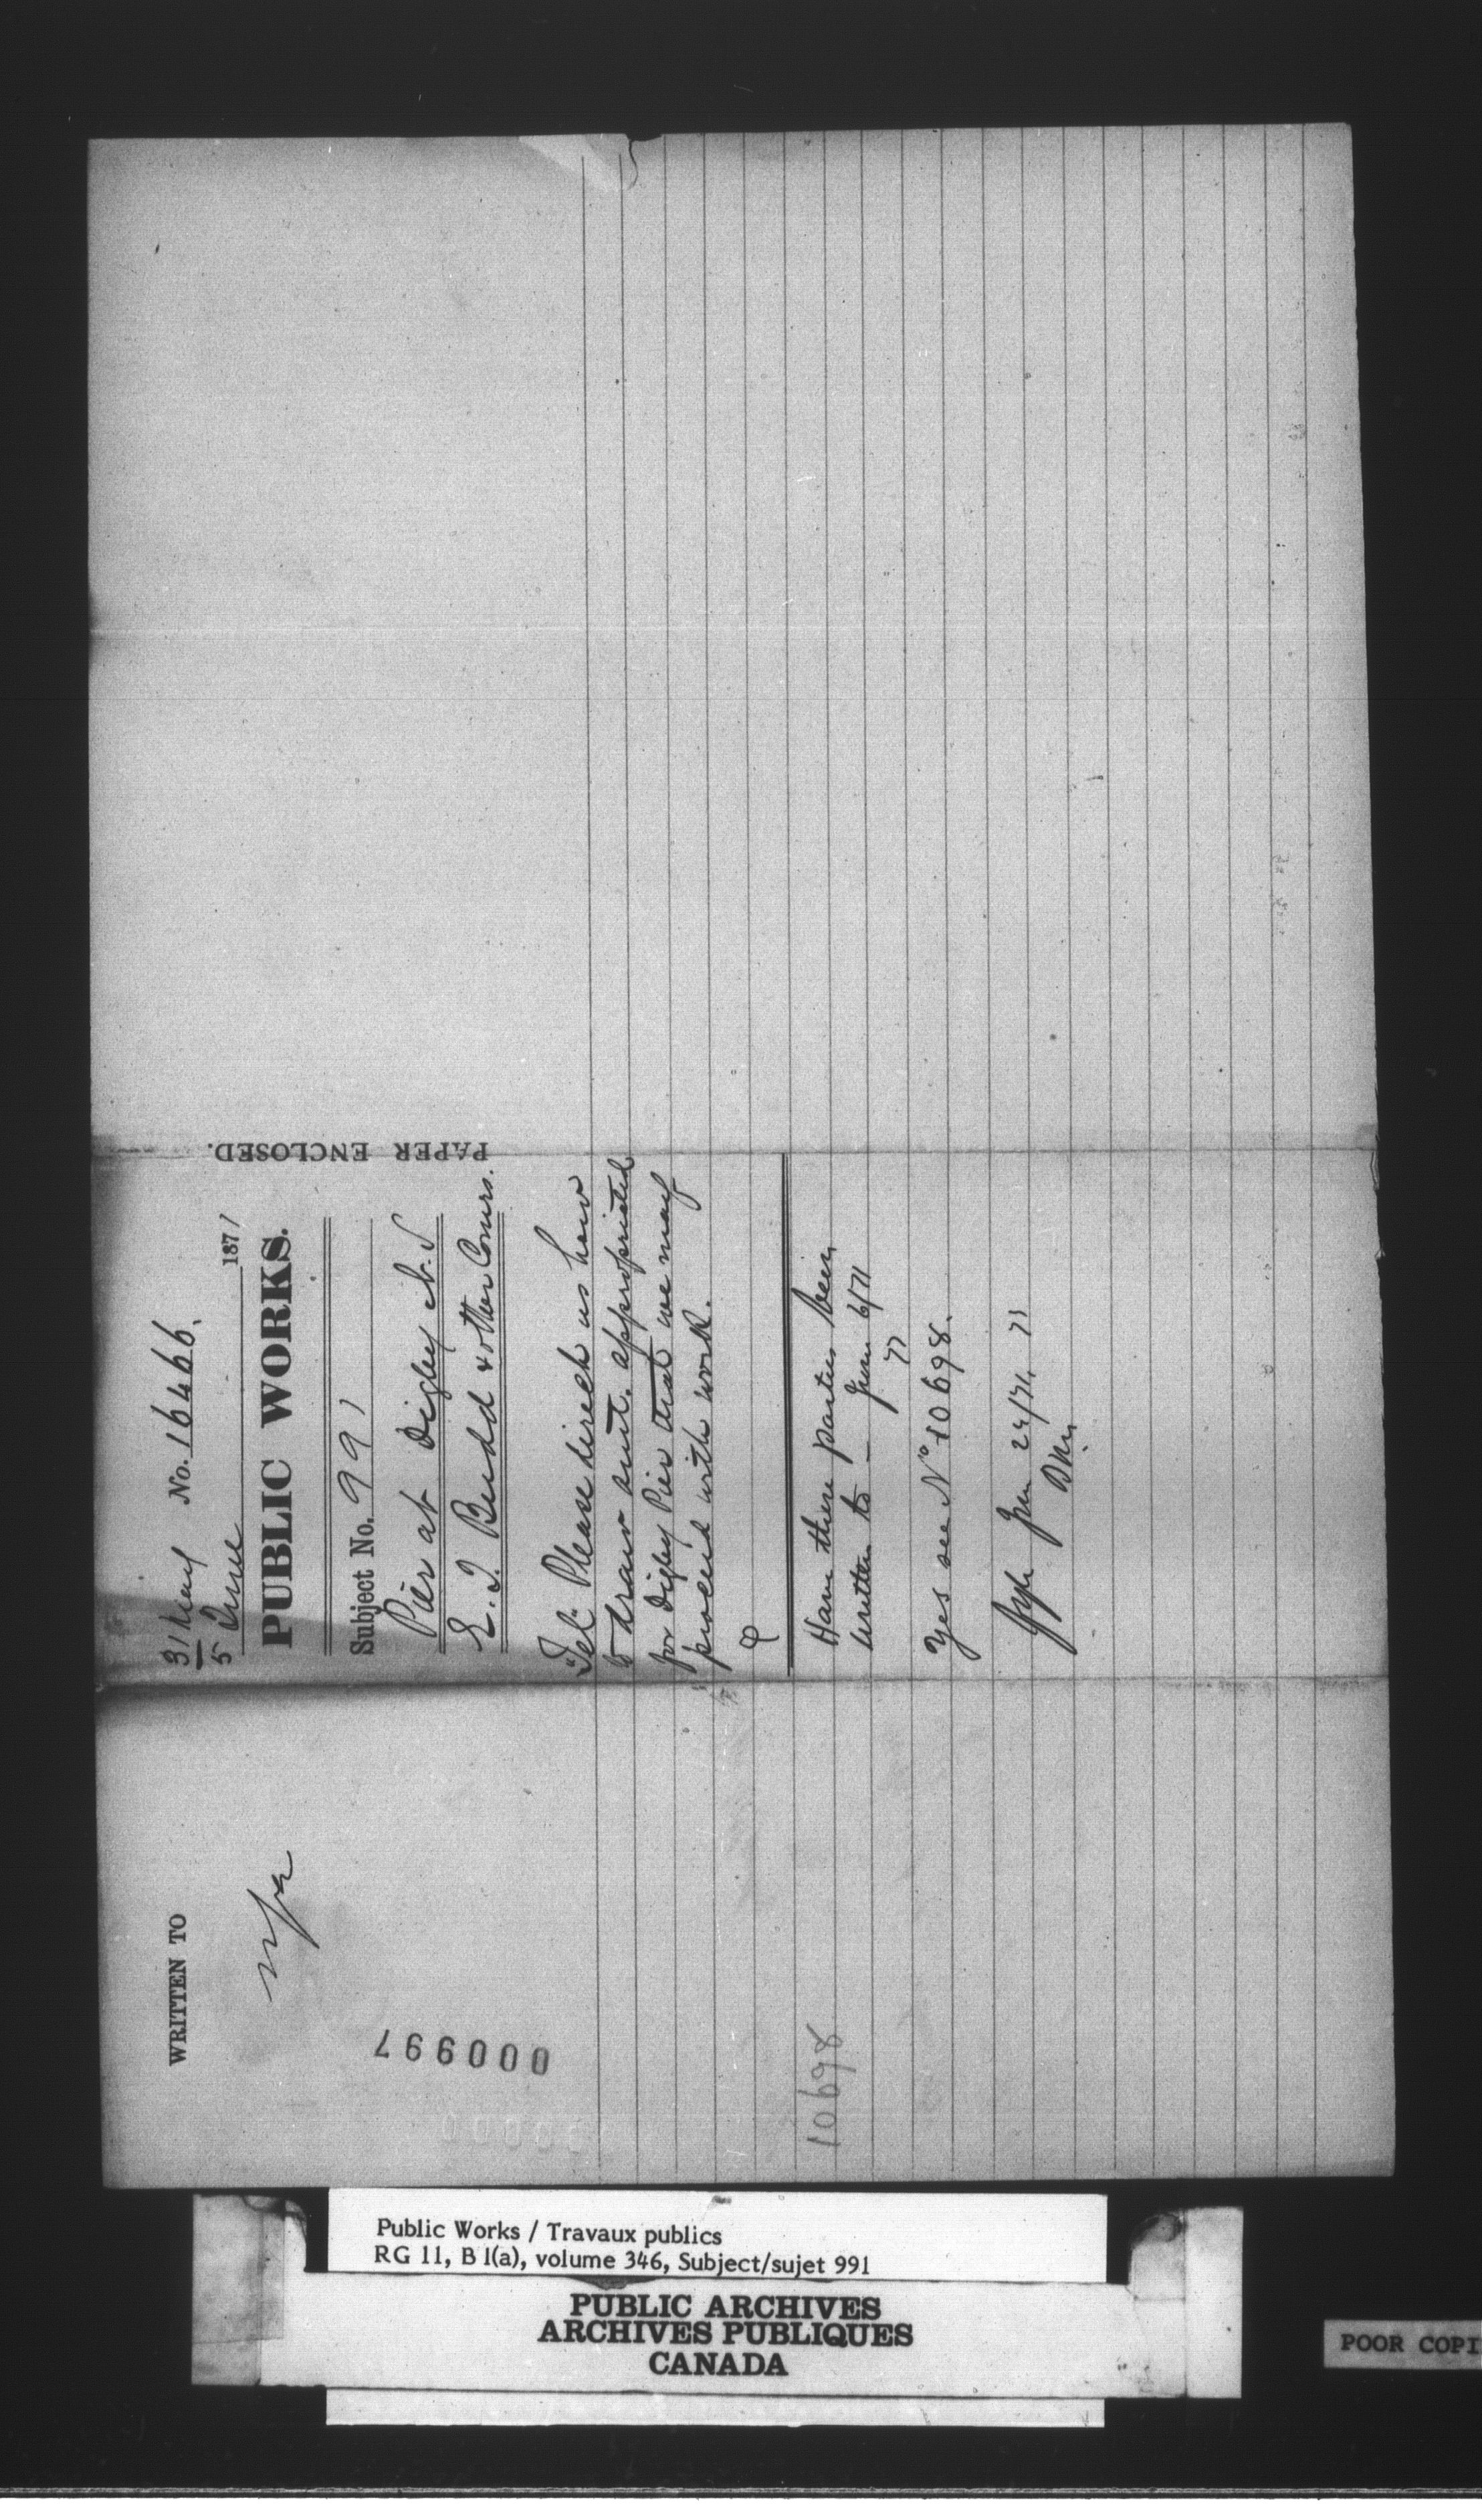 31 May No. 16466.
5 June 1871
PUBLIC WORKS.
Subject No. 991
Pier at Digby N.S
E. J. Budd & other Comrs.
Tel. Please direct us how
to draw amt. appropriated
for Digby Pier that we may
proceed with work.
Have these parties been
written to – June 6/71
Yes see No 10698.
June 24/71
PAPER ENCLOSED.
WRITTEN TO
000997
10698
Public Works / Travaux publics
RG 11, B 1(a), volume 346, Subject/sujet 991
PUBLIC ARCHIVES
ARCHIVES PUBLIQUES
CANADA
POOR COPI